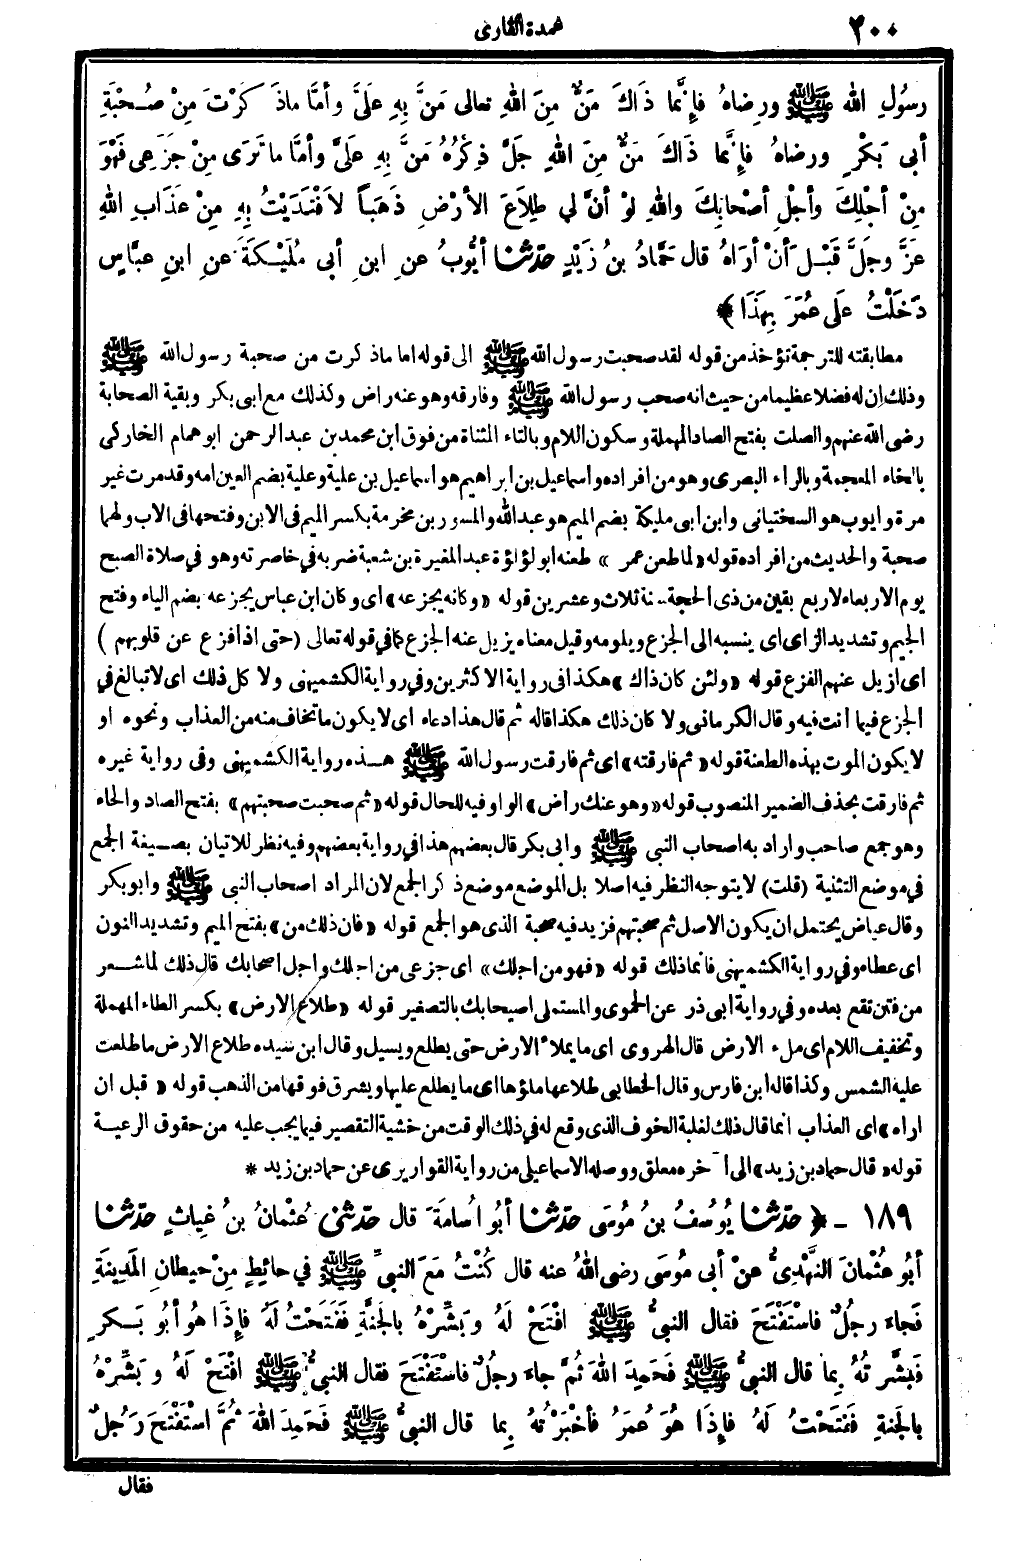 ٢٠٠
عمدة القارى
رسُولِ اللهِ ﷺ ورِضاهُ فإِنَّما ذَاكَ مَنٌّ مِنَ اللهِ تعالى مَنَّ بِهِ عَلَيَّ وأمَّا ماذَ كَرْتَ مِنْ صُحْبَةِ
أبى بَكْرٍ ورضاهُ فإنَّما ذَاكَ مَنٌّ مِنَ اللهِ جَلَّ ذِكْرُهُ مَنَّ بِهِ عَلَيَّ وأمَّا ما تَرَى مِنْ جَزَعِى فَهْوَ
مِنْ أجْلِكَ وأجْلِ أصْحابِكَ واللهِ لوْ أنَّ لي طِلاَعَ الأرْضِ ذَهَباً لاَفْتَدَيْتُ بِهِ مِنْ عَذَابِ اللهِ
عزَّ وجلَّ قَبْلَ أنْ أرَاهُ قال حَمَّادُ بنُ زَيْدٍ حدّثنا أيُّوبُ عنِ ابنِ أبى مُلَيْكَةَ عنِ ابنِ عبَّاسٍ
دَخَلْتُ عَلَى عُمَرَ بِهَذَا ﴾
مطابقته للترجمة تؤخذ من قوله لقد صحبت رسول الله ﷺ الى قوله اما ماذ كرت من صحبة رسول الله ﷺ
وذلك ان له فضلا عظيما من حيث انه صحب رسول الله ﷺ وفارقه وهو عنه راض وكذلك مع ابى بكر وبقية الصحابة
رضى الله عنهم والصلت بفتح الصاد المهملة وسكون اللام وبالتاء المثناة من فوق ابن محمد بن عبد الرحمن ابو همام الخاركى
بالخاء المعجمة وبالراء البصرى وهو من افراده واسماعيل بن ابراهيم هو اسماعيل بن علية وعلية بضم العين امه وقد مرت غير
مرة وايوب هو السختيانى وابن ابى مليكة بضم الميم هو عبدالله والمسور بن مخرمة بكسر الميم فى الابن وفتحها فى الاب ولهما
صحبة والحديث من افراده قوله «لما طعن عمر» طعنه ابو لؤلؤة عبد المغيرة بن شعبة ضربه في خاصرته وهو في صلاة الصبح
يوم الاربعاء لاربع بقين من ذى الحجة سنة ثلاث وعشرين قوله «وكانه يجزعه» اى وكان ابن عباس يجزعه بضم الياء وفتح
الجيم وتشديد الزاى اى ينسبه الى الجزع ويلومه وقيل معناه يزيل عنه الجزع كما في قوله تعالى (حتى اذا فزع عن قلوبهم)
اى ازيل عنهم الفزع قوله «ولئن كان ذاك» هكذا فى رواية الاكثرين وفي رواية الكشميهنى ولا كل ذلك اى لا تبالغ في
الجزع فيما انت فيه وقال الكرمانى ولا كان ذلك هكذا قاله ثم قال هذا دعاء اى لا يكون ما تخاف منه من العذاب ونحوه او
لا يكون الموت بهذه الطعنة قوله «ثم فارقته» اى ثم فارقت رسول الله ﷺ هذه رواية الكشميهنى وفى رواية غيره
ثم فارقت بحذف الضمير المنصوب قوله «وهو عنك راض» الواو فيه للحال قوله «ثم صحبت صحبتهم» بفتح الصاد والحاء
وهو جمع صاحب واراد به اصحاب النبى ﷺ وابى بكر قال بعضهم هذا في رواية بعضهم وفيه نظر للاتيان بصيغة الجمع
في موضع التثنية (قلت) لا يتوجه النظر فيه اصلا بل الموضع موضع ذكر الجمع لان المراد اصحاب النبى ﷺ وابو بكر
وقال عياض يحتمل ان يكون الاصل ثم صحبتهم فزيد فيه صحبة الذى هو الجمع قوله «فان ذلك من» بفتح الميم وتشديد النون
اى عطاء وفي رواية الكشميهنى فانما ذلك قوله «فهو من اجلك» اى جزعى من اجلك واجل اصحابك قال ذلك لما شعر
من فتن تقع بعده وفي رواية ابى ذر عن الحموى والمستملى اصيحابك بالتصغير قوله «طلاع الارض» بكسر الطاء المهملة
وتخفيف اللام اى ملء الارض قال الهروى اى ما يملأ الارض حتى يطلع ويسيل وقال ابن سيده طلاع الارض ما طلعت
عليه الشمس وكذا قاله ابن فارس وقال الخطابى طلاعها ملؤها اى ما يطلع عليها ويشرق فوقها من الذهب قوله «قبل ان
اراه» اى العذاب انما قال ذلك لغلبة الخوف الذى وقع له في ذلك الوقت من خشية التقصير فيما يجب عليه من حقوق الرعية
قوله «قال حماد بن زيد» الى آخره معلق ووصله الاسماعيلى من رواية القواريرى عن حماد بن زيد *
١٨٩ - ﴿ حدّثنا يُوسُفُ بنُ مُوسَى حدّثنا أبُو أُسامَةَ قال حدّثني عُثْمانُ بنُ غِياثٍ حدّثنا
أبُو عُثْمانَ النَّهْدِيُّ عنْ أبى مُوسَى رضى اللهُ عنه قال كُنْتُ مَعَ النبيِّ ﷺ في حائِطٍ مِنْ حيطانِ المَدِينَةِ
فَجاءَ رجُلٌ فاسْتَفْتَحَ فقال النبيُّ ﷺ افْتَحْ لَهُ وبَشِّرْهُ بالجَنَّةِ فَفَتَحْتُ لَهُ فإِذَا هُوَ أبُو بَكرٍ
فَبَشَّرْتُهُ بِما قال النبيُّ ﷺ فَحَمِدَ اللهَ ثُمَّ جاءَ رجلٌ فاسْتَفْتَحَ فقال النبيُّ ﷺ افْتَحْ لَهُ وبَشِّرْهُ
بالجَنةِ فَفَتَحْتُ لَهُ فإذَا هُوَ عُمَرُ فأخْبَرْتُهُ بِما قال النبيُّ ﷺ فَحَمِدَ اللهَ ثُمَّ اسْتَفْتَحَ رَجُلٌ
فقال